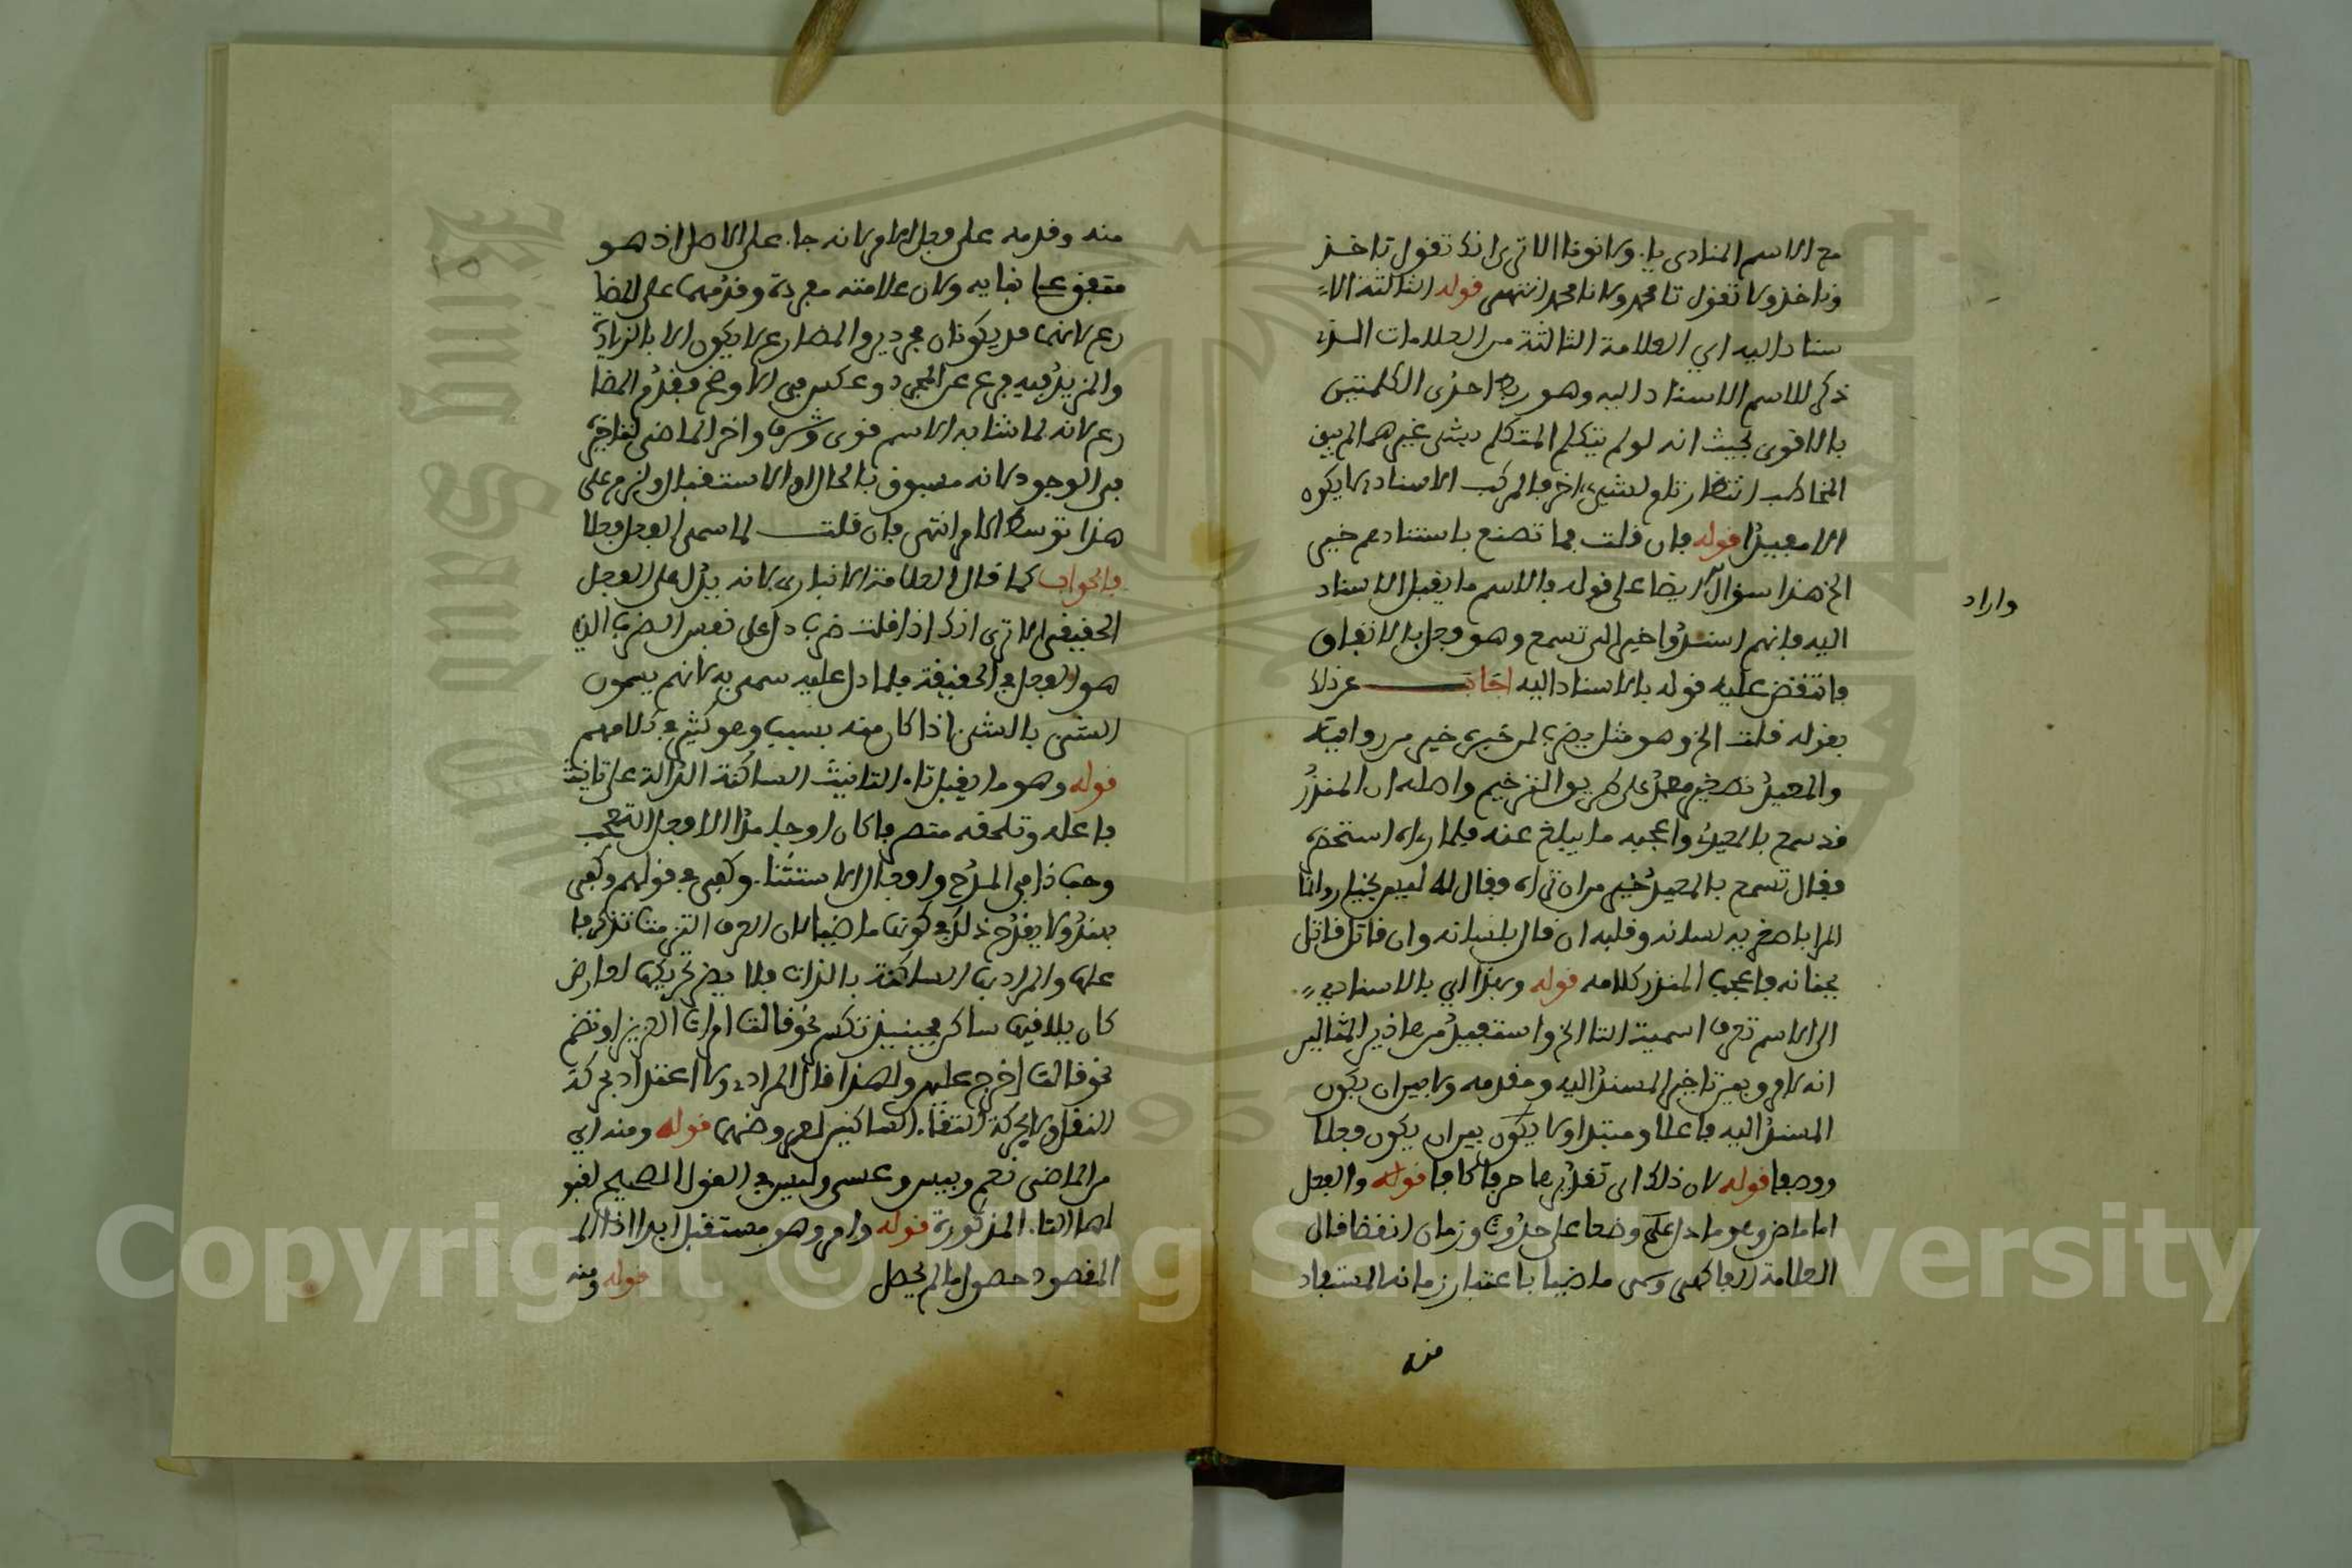 مع الاسم المنادى يا. ولا نوفا الا ترى انك تقول تاخذ
وناخذ ولا تقول تا محمد ولا نا محمد انتهى قوله الثالثة الا
سناد اليه اي العلامة الثالثة من العلامات التي
ذكر للاسم الاسناد اليه وهو ربط احدى الكلمتين
بالاخرى بحيث انه لو لم يتكلم المتكلم بشىء غيرهما لم يبق
المخاطب انتظار تام لشىء اخر فالمركب الاسنادي لا يكون
الا مفيدا قوله فان قلت فما تصنع باسنادهم خير
الخ هذا سؤال ايضا على قوله والاسم ما يقبل الاسناد
اليه فانهم اسندوا خير الى تسمع وهو فعل بالاتفاق
فانتقض عليه قوله بالاسناد اليه اجاب عن ذلك
بقوله قلت الخ وهو مثل يضرب لمن خبره خير من رؤيته
والمعيد تصغير معد على طريق الترخيم واصله ان المنذر
قد سمع بالمعيد واعجبه ما يبلغ عنه فلما رءاه استحقره
فقال تسمع بالمعيد خير من ان تراه فقال له ليس بخيار وانما
المرا باصغريه لسانه وقلبه ان قال بلسانه وان قاتل قاتل
بجنانه فاعجب المنذر كلامه قوله وبهذا اي بالاسناد
الى الاسم تعرف اسمية التا الخ واستفيد من هاذين المثالين
انه لا فرق بين تاخير المسند اليه وتقدمه ولا بين ان يكون
المسند اليه فاعلا ومبتدا ولا يكون بين ان يكون فعلا
ووصفا قوله لان ذلك اي تقديرها حرفا كافا قوله والفعل
اما ماض وهو ما دل وضعا على حدوث وزمان انقضا قال
العلامة الفاكهي وسمي ماضيا باعتبار زمانه المستفاد
منه
واراد
منه وقدمه على فعل الامر لانه جاء على الاصل اذ هو
متفق على بنايه ولان علامته مفردة وقدمهما على المضا
رع لانهما قد يكونان مجردين والمضارع لا يكون الا بالزيادة
والمزيد فيه فرع عن المجرد وعكس في الاوضح فقدم المضا
رع لانه لما شابه الاسم قوي وشرف واخر الماضي لتاخره
في الوجود لانه مسبوق بالحال او الاستقبال ولزم على
هذا توسط الامر انتهى فان قلت لما سمي الفعل فعلا
فالجواب كما قال العلامة الانباري لانه يدل على الفعل
الحقيقي الا ترى انك اذا قلت ضرب دل على نفس الضرب الذي
هو الفعل في الحقيقة فلما دل عليه سمي به لانهم يسمون
الشىء بالشىء اذا كان منه بسبب وهو كثير في كلامهم
قوله وهو ما يقبل تاء التانيث الساكنة الدالة على تانيث
فاعله وتلحقه متصرفا كان او جامدا الا افعل التعجب
وحبذا في المدح وافعال الاستثناء. وكفى في قولهم وكفى
بهند ولا يقدح ذلك في كونها ماضيا لان العرب التزمت تذكير فا
علها والمراد بها الساكنة بالذات فلا يضر تحريكها لعارض
كان يلاقيها ساكن فحينئذ تكسر نحو قالت امرات العزيز او تضم
نحو قالت اخرج عليهن ولهذا قال المرادي ولا اعتداد بحركة
النقل ولا بحركة التقاء. الساكنين لعروضهما قوله ومنه اي
من الماضي نعم وبيس وعسى وليس في القول الصحيح لقبو
لها التاء. المذكورة قوله وامر وهو مستقبل ابدا اذ المـ
المقصود حصول ما لم يحصل قوله ومنه
Copyright © King Saud University